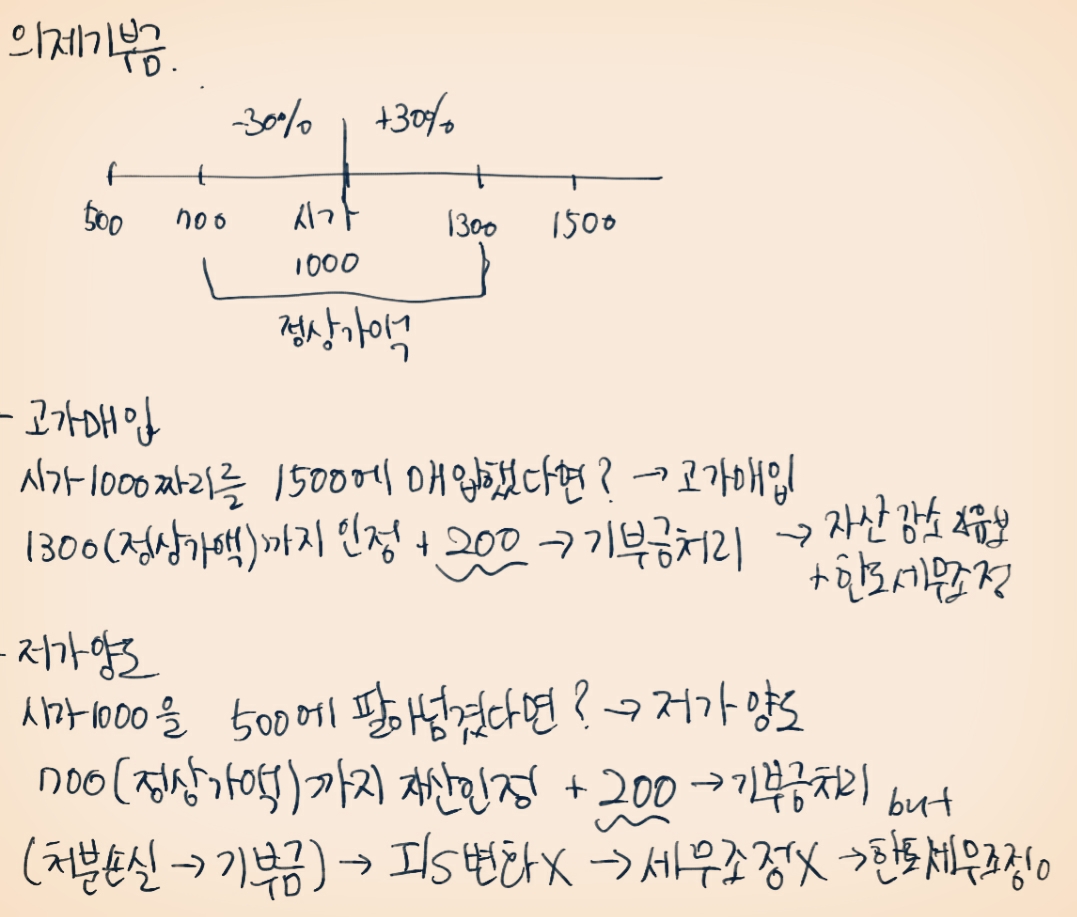 의제기부금.
-30% +30%
500 700 시가 1300 1500
1000
정상가액
- 고가매입
시가 1000짜리를 1500에 매입했다면? → 고가매입
1300(정상가액)까지 인정 + 200 → 기부금처리 → 자산 감소 △유보
+ 한도세무조정
- 저가양도
시가 1000을 500에 팔아넘겼다면? → 저가양도
700(정상가액)까지 자산인정 + 200 → 기부금처리 but
(처분손실 → 기부금) → 피S변화X → 세무조정X → 한도세무조정o